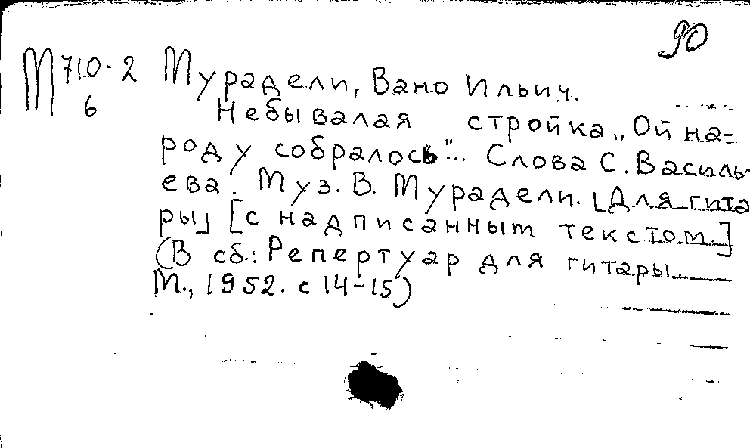 90
М 710-2 Мурадели, Вано Ильич.
6 Небывалая стройка „Ой на=
роду собралось"... Слова С. Василь-
ева. Муз. В. Мурадели. [Для гита
ры] [с надписанным текстом.]
(В сб.: Репертуар для гитары
М., 1952. с 14-15)